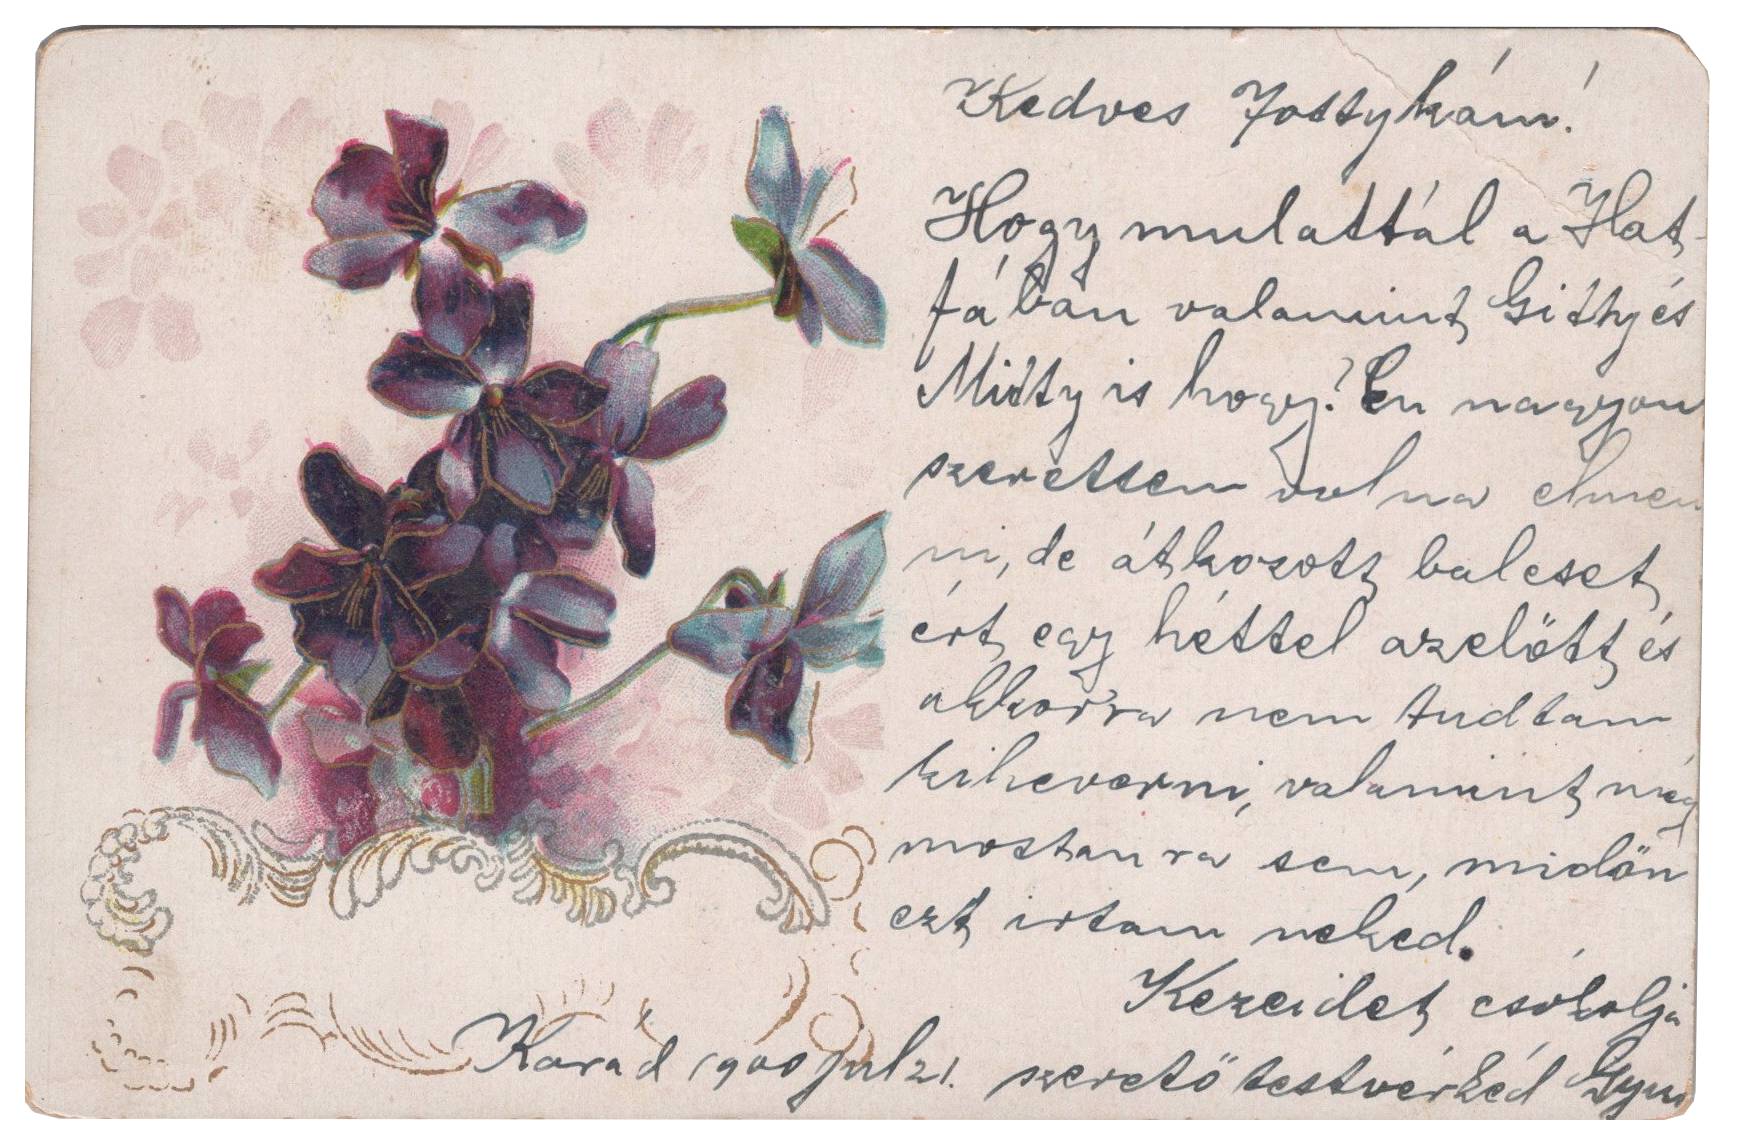 Kedves Jottykám!
Hogy mulattál a Hat-
fában valamint Gitty és
Mitty is hogy? Én nagyon
szerettem volna elmen
ni, de átkozott baleset
ért egy héttel azelőtt és
akkorra nem tudtam
kiheverni, valamint még
mostanra sem, midőn
ezt irtam neked.
Kezeidet csókolja
Karád 1900 jul 21. szerető testvérkéd Gyu